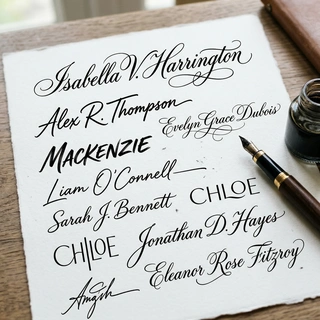 Isabella V. Harrington
Alex R. Thompson
Evelyn Grace Dubois
MACKENZIE
Liam O'Connell
Sarah J. Bennett
CHLOE
CHLOE
Jonathan D. Hayes
Eleanor Rose Fitzroy